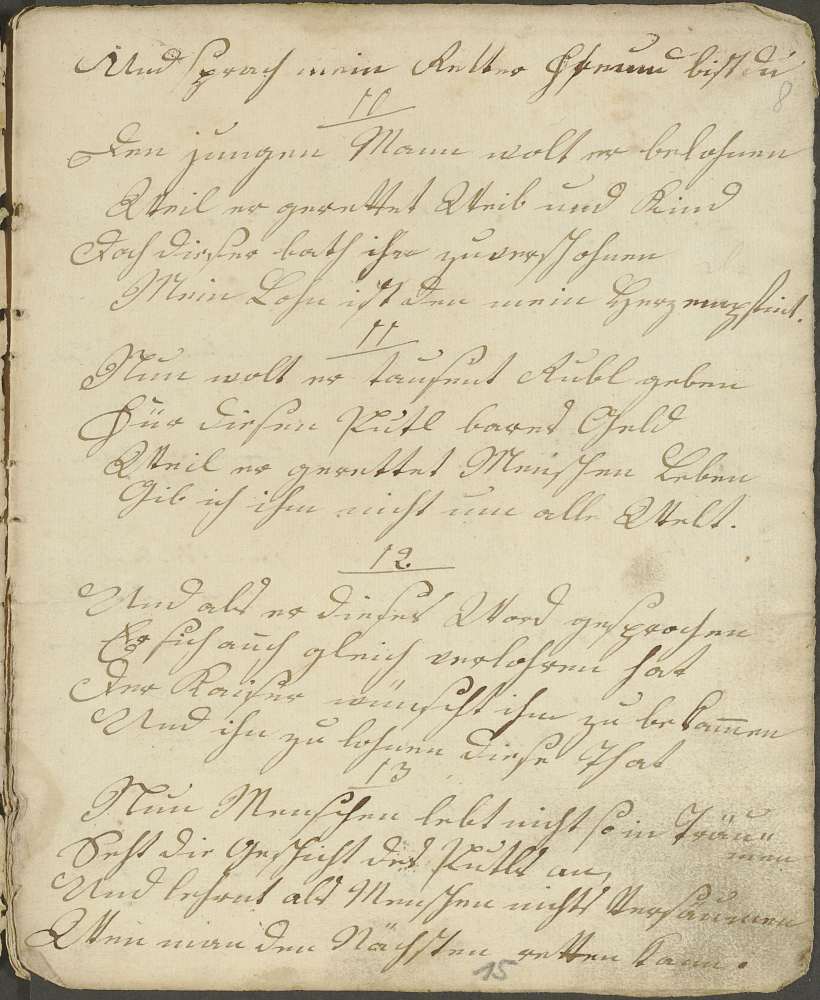 Und sprach mein Retter Freund bist du
8
10
Den jungen Mann wolt er belohnen
Weil er gerettet Weib und Kind
Doch dieser bath ihn zuverschohnen
Mein Lohn ist den mein Herz empfint.
11
Nun wolt er tausent Rubl geben
Für diesen Putl bares Geld
Weil er gerettet Menschen Leben
Gib ich ihm nicht um alle Welt.
12
Und als er dieses Word gesprochen
Er sich auch gleich verlohren hat
Der Kaiser wünscht ihm zu bekam̄en
Und ihn zu lohnen diese That
13
Nun Menschen lebt nicht so in Träu=
men
Seht die Geschicht des Putls an,
Und lehrnt als Menschen nichts Versäumen
Wen man den Nächsten retten kann.
15